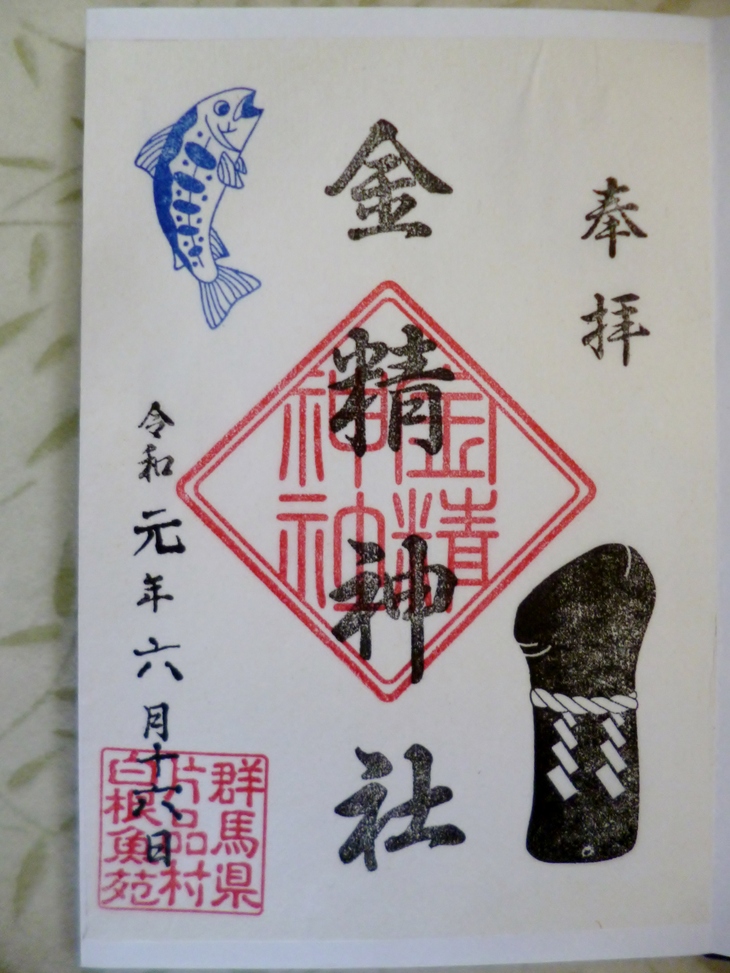 奉拝
金精神社
金精
神社
令和元年六月十六日
群馬県
片品村
白根魚苑